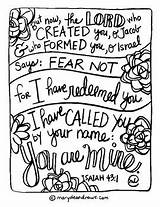 But now, the LORD who
CREATED you, O Jacob
& who FORMED you, O Israel
Says: FEAR NOT
for I have redeemed you
I have CALLED you
by your name:
You are Mine.
ISAIAH 43:1
© marydeandraws.com